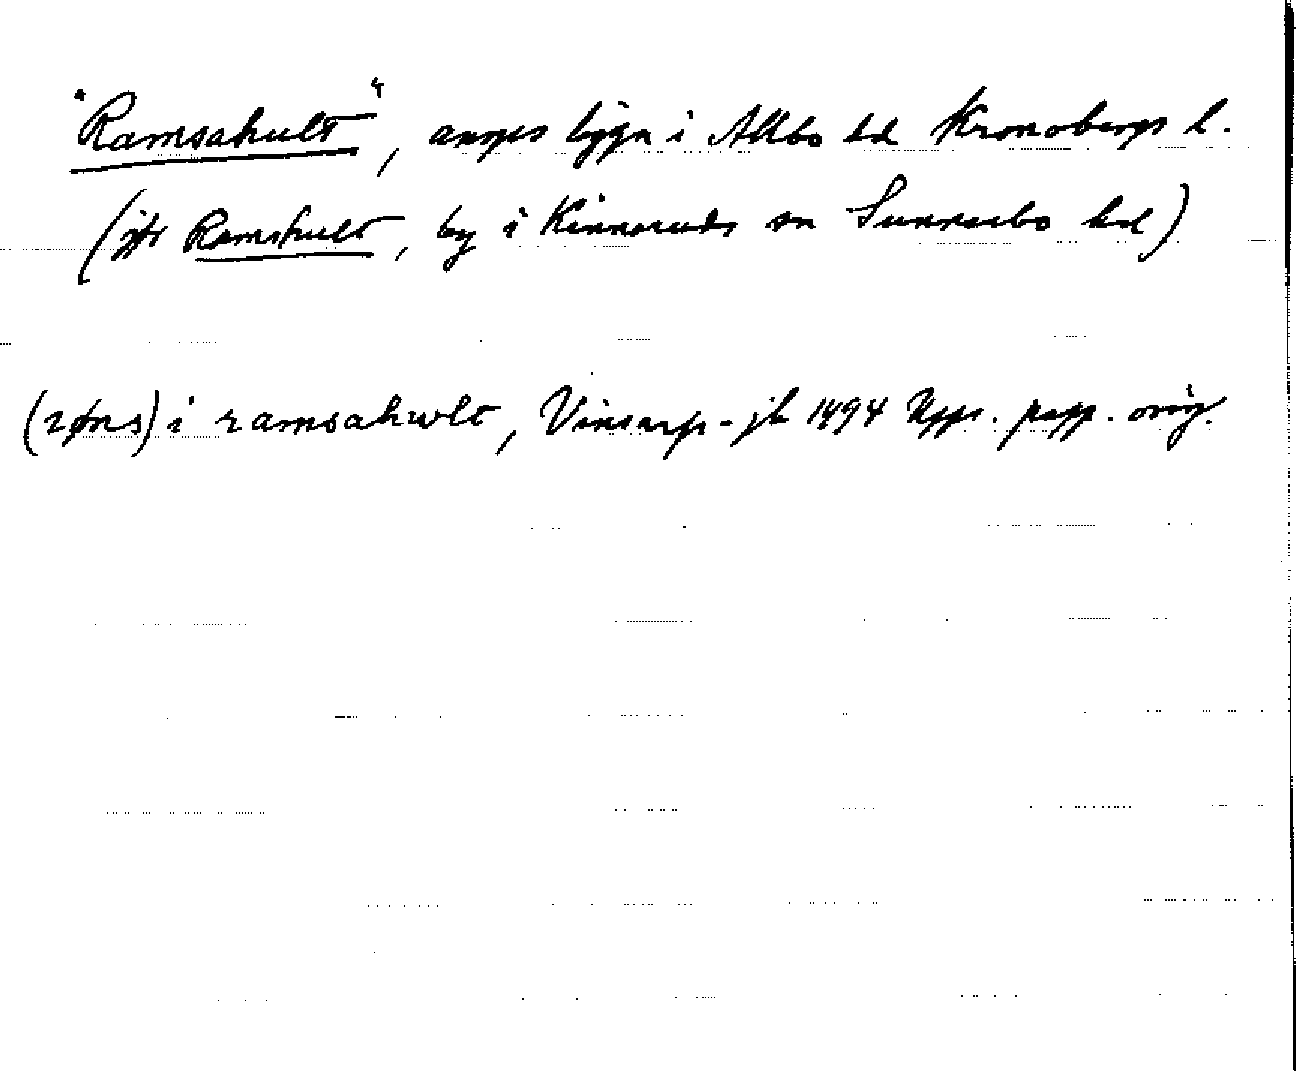 "Ramsahult", anges ligga i Allbo hd Kronobergs l.
(jfr Ramshult, by i Kinnareds sn Sunnerbo hd)
(røns) i ramsahwlt, Vinsarp-jb 1494 Upps. papp. orig.